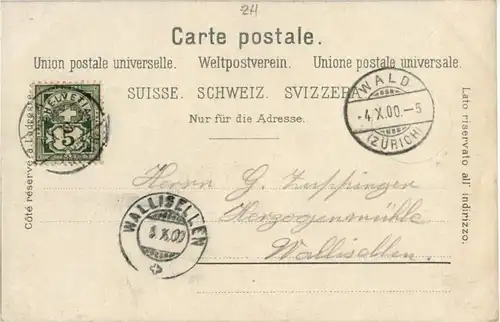 24
Carte postale.
Union postale universelle. Weltpostverein. Unione postale universale.
SUISSE. SCHWEIZ. SVIZZERA
Nur für die Adresse.
Côté réservé à l'adresse
HELVETIA
5
WALD
-4.X.00.-5
(ZÜRICH)
Lato riservato all' indirizzo.
Herrn G. Zuppinger
Herzogenmühle
Wallisellen.
WALLISELLEN
X.00